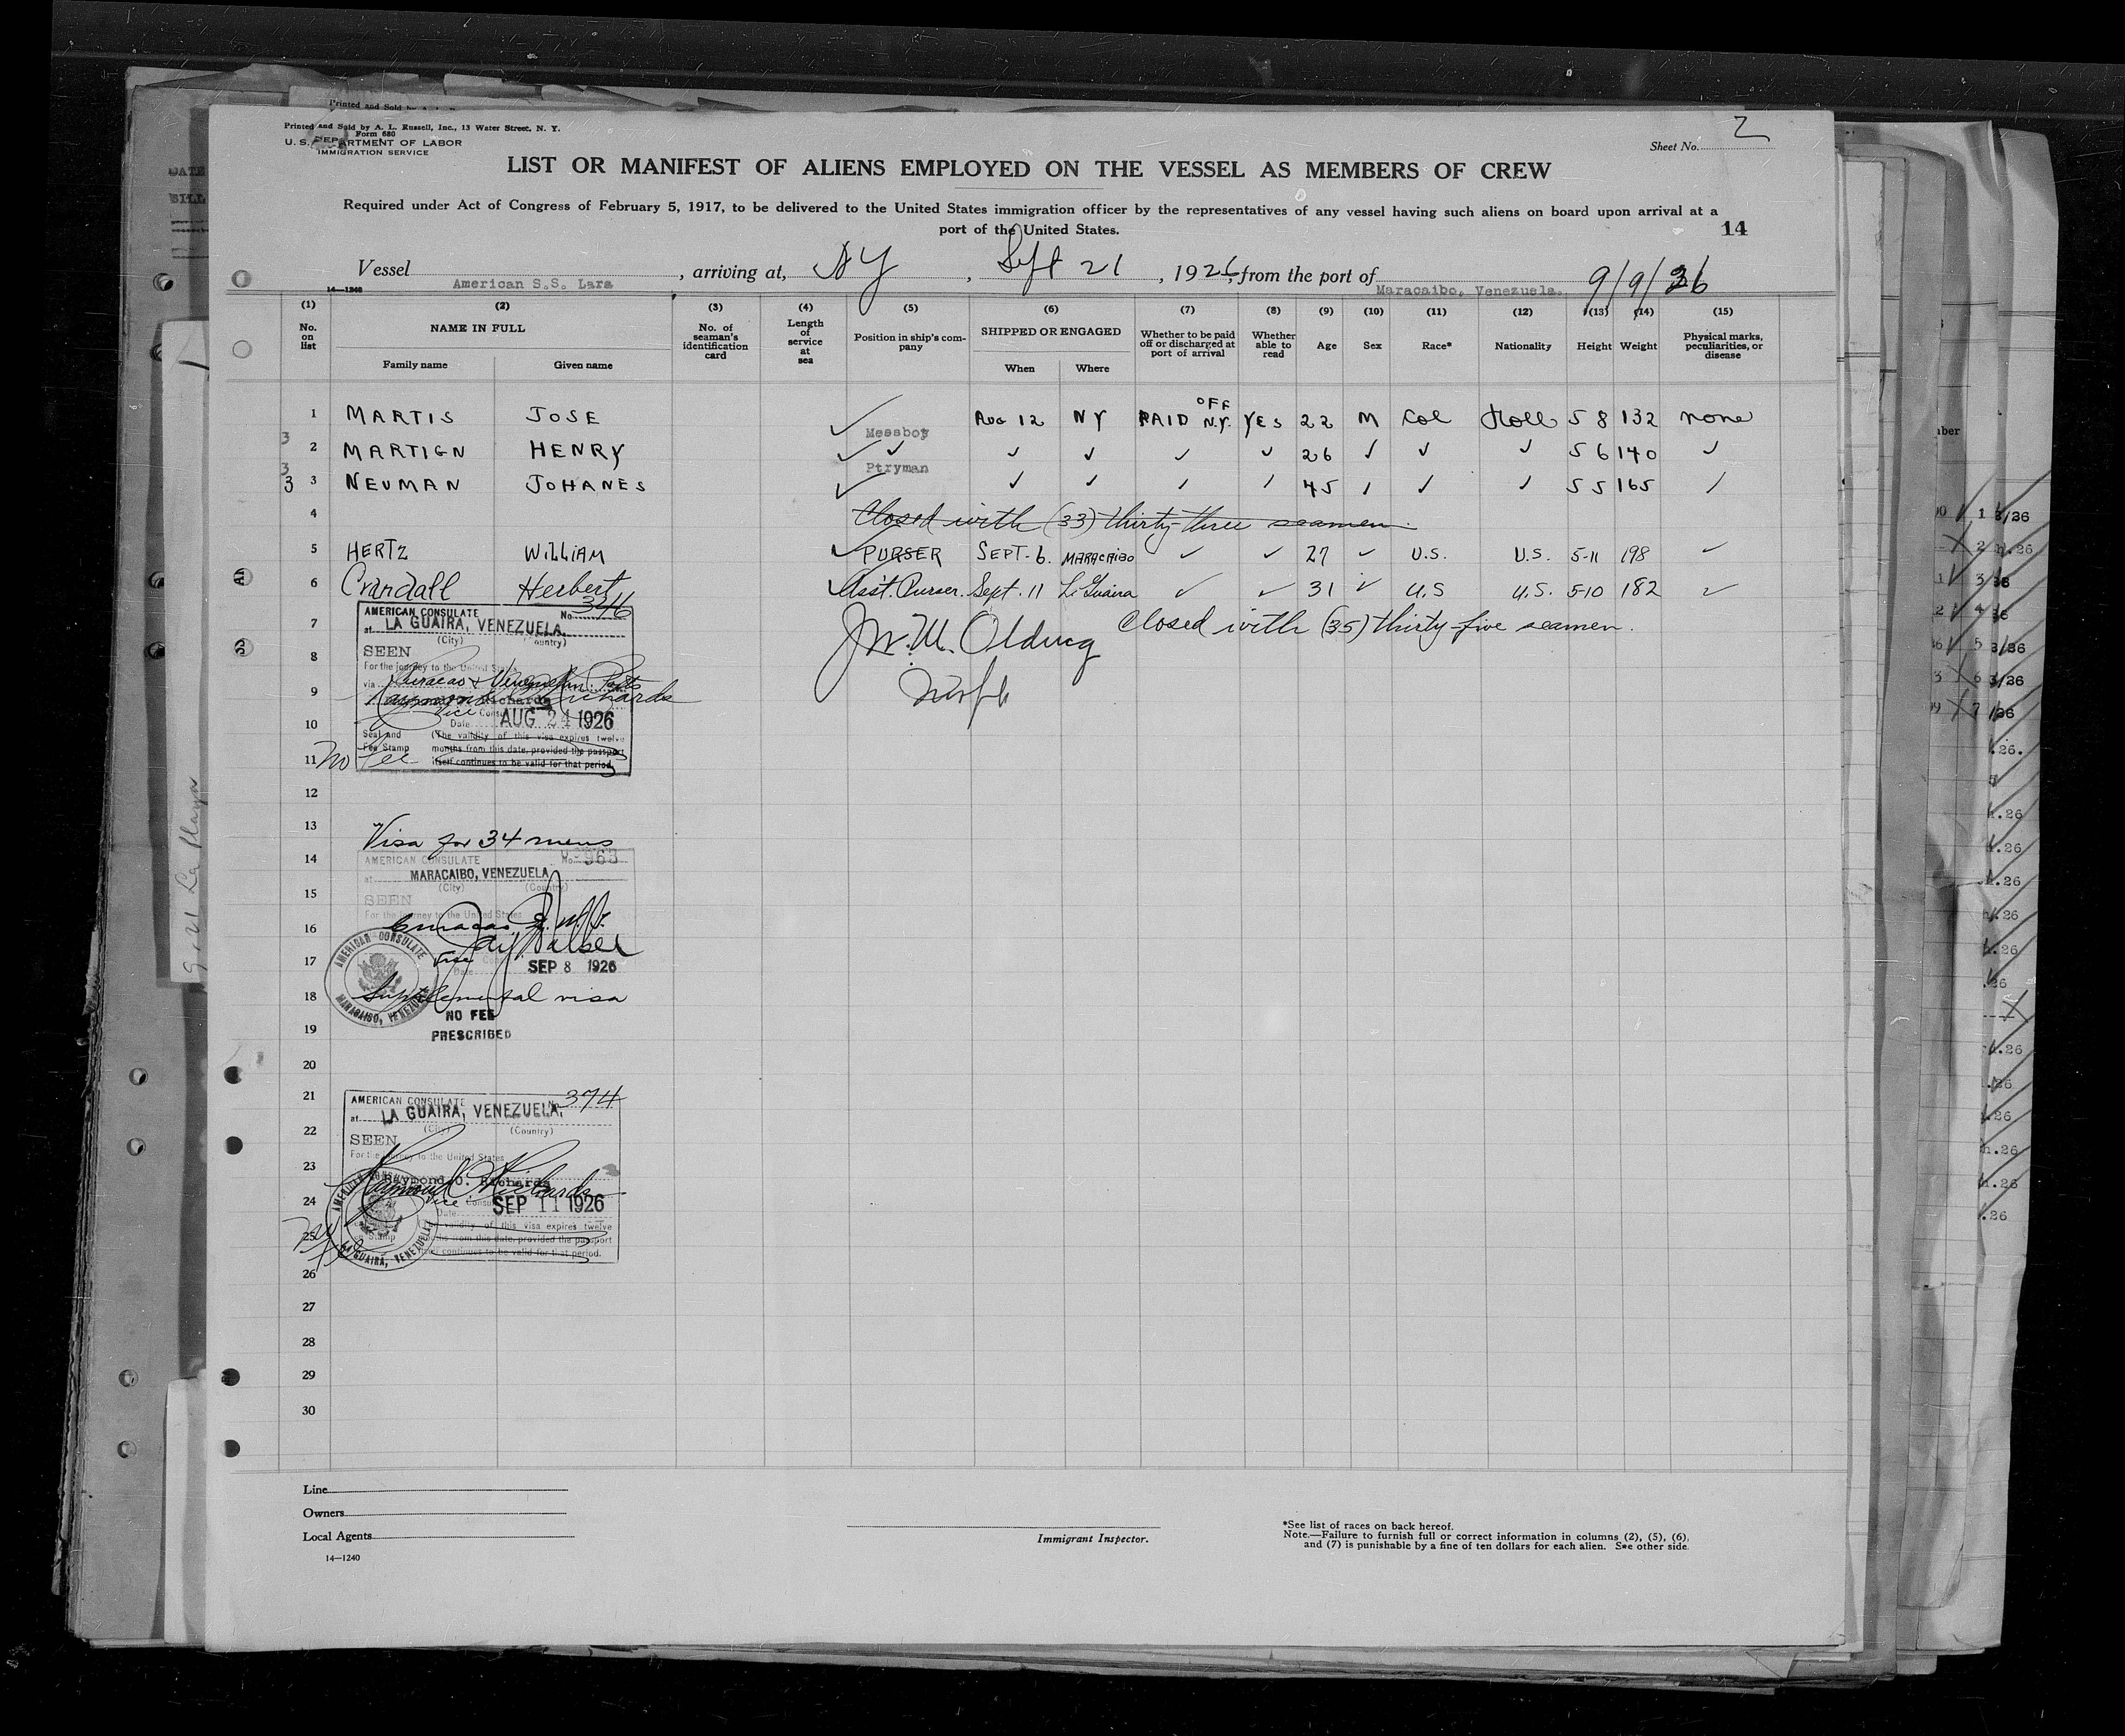 Printed and Sold by A. L. Russell, Inc., 13 Water Street, N. Y.
Form 680
U. S. DEPARTMENT OF LABOR
IMMIGRATION SERVICE
Sheet No. 2
LIST OR MANIFEST OF ALIENS EMPLOYED ON THE VESSEL AS MEMBERS OF CREW
Required under Act of Congress of February 5, 1917, to be delivered to the United States immigration officer by the representatives of any vessel having such aliens on board upon arrival at a
port of the United States.
14
Vessel American S.S. Lara, arriving at, NY, Sept 21, 1926, from the port of Maracaibo, Venezuela. 9/9/26
14—1240
(1) (2) (3) (4) (5) (6) (7) (8) (9) (10) (11) (12) (13) (14) (15)
No. on list NAME IN FULL Family name Given name No. of seaman's identification card Length of service at sea Position in ship's company SHIPPED OR ENGAGED When Where Whether to be paid off or discharged at port of arrival Whether able to read Age Sex Race* Nationality Height Weight Physical marks, peculiarities, or disease
1 MARTIS JOSE ✓ Messboy Aug 12 NY PAID OFF N.Y. YES 22 M Col Holl 5 8 132 none
3 2 MARTIGN HENRY ✓ ✓ Ptryman ✓ ✓ ✓ ✓ 26 ✓ ✓ ✓ 5 6 140 ✓
3 3 3 NEUMAN JOHANES ✓ ✓ ✓ ✓ ✓ 45 ✓ ✓ ✓ 5 5 165 ✓
4 Closed with (33) thirty-three seamen.
5 HERTZ WILLIAM ✓ PURSER SEPT. 6. MARACAIBO ✓ ✓ 27 ✓ U.S. U.S. 5-11 198 ✓
6 Crandall Herbert ✓ Asst. Purser. Sept. 11 La Guaira ✓ ✓ 31 ✓ U.S U.S. 5-10 182 ✓
7 Closed with (35) thirty-five seamen.
AMERICAN CONSULATE No. 346
at LA GUAIRA, VENEZUELA.
(City) (Country)
8 SEEN
For the journey to the United States
via Curacao & Venezuelan Ports
9 Raymond O. Richards
Vice Consul
10 Date AUG 24 1926
Seal and Fee Stamp (The validity of this visa expires twelve
months from this date, provided the passport
11 No Fee itself continues to be valid for that period.
12
13 Visa for 34 mens
14 AMERICAN CONSULATE No. 963
at MARACAIBO, VENEZUELA
(City) (Country)
15 SEEN
For the journey to the United States
16 Curacao
AMERICAN CONSULATE
MARACAIBO, VENEZUELA
17 Vice Consul
Date SEP 8 1926
18 Supplemental visa
NO FEE
19 PRESCRIBED
20
21 AMERICAN CONSULATE No. 374
at LA GUAIRA, VENEZUELA,
22 (City) (Country)
SEEN
For the journey to the United States
23 Raymond O. Richards
24 Vice Consul
Date SEP 11 1926
AMERICAN CONSULATE
LA GUAIRA, VENEZUELA
The validity of this visa expires twelve
25 months from this date, provided the passport
itself continues to be valid for that period.
26
27
28
29
30
Line
Owners
Local Agents
14—1240
Immigrant Inspector.
*See list of races on back hereof.
Note.—Failure to furnish full or correct information in columns (2), (5), (6),
and (7) is punishable by a fine of ten dollars for each alien. See other side.